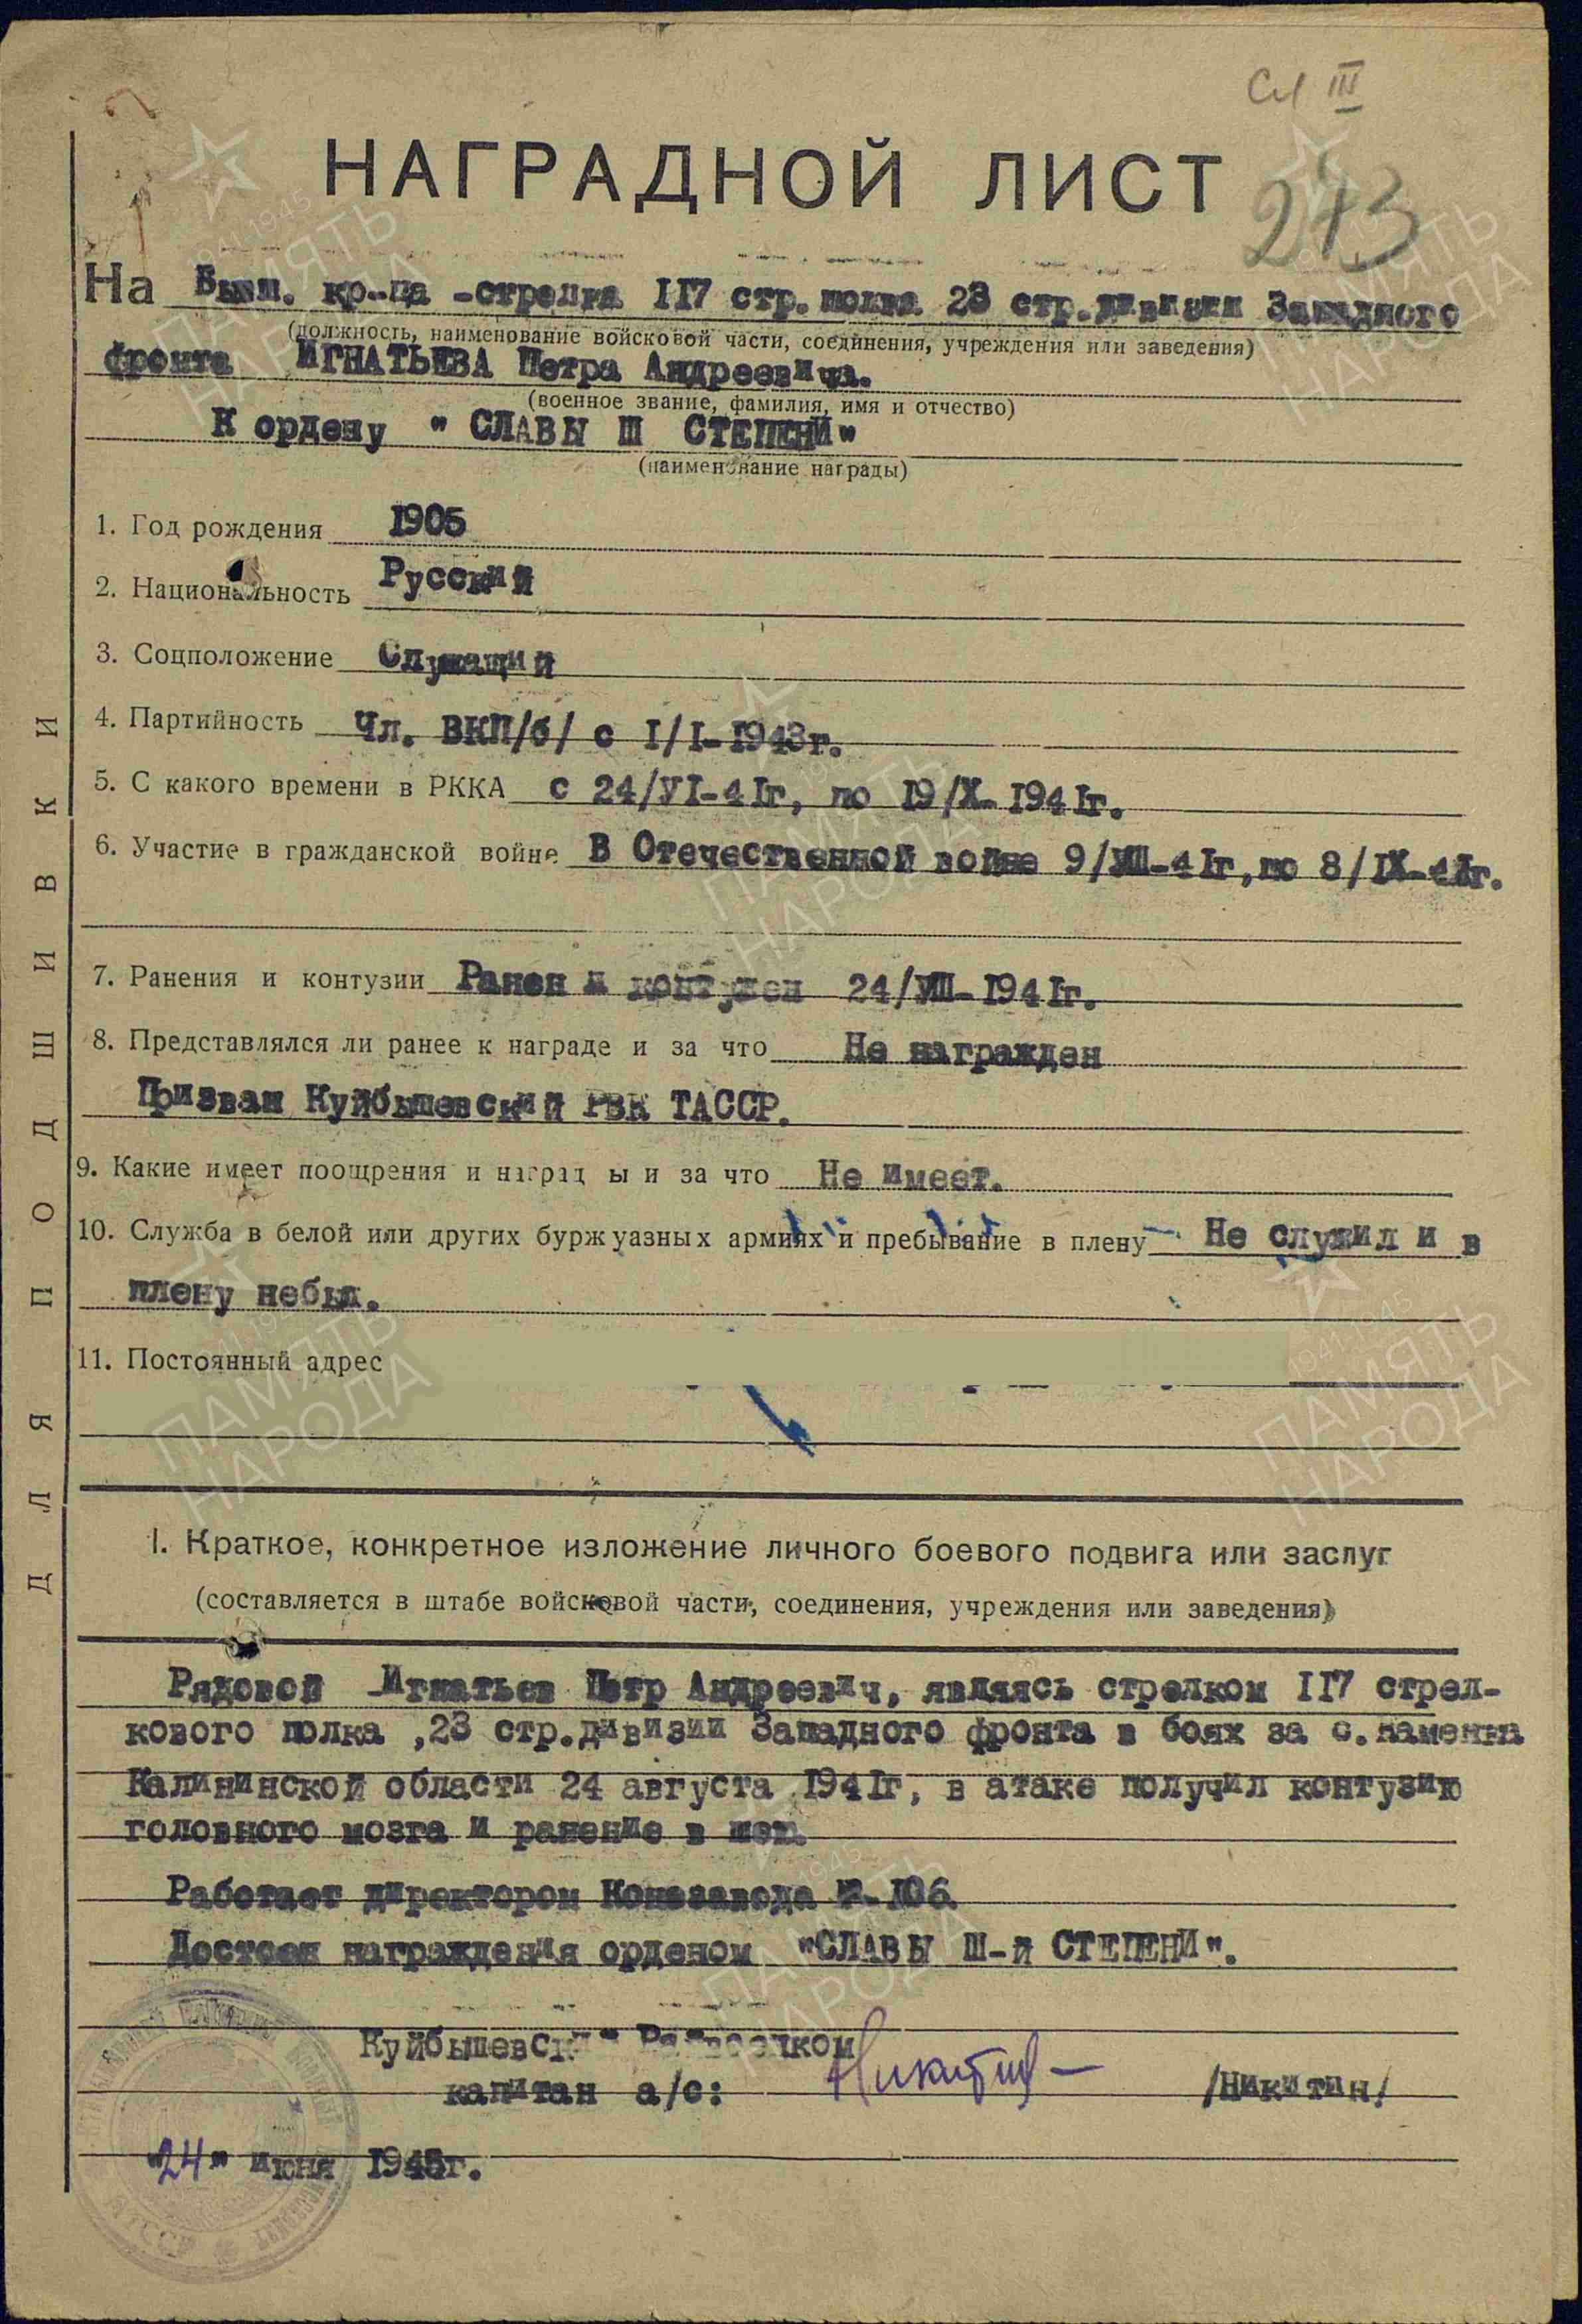 Сл III
НАГРАДНОЙ ЛИСТ
273
На Бывш. кр-ца -стрелка II7 стр. полка 23 стр.дивизии Западного
(должность, наименование войсковой части, соединения, учреждения или заведения)
фронта ИГНАТЬЕВА Петра Андреевича.
(военное звание, фамилия, имя и отчество)
К ордену " СЛАВЫ Ш СТЕПЕНИ"
(наименование награды)
1. Год рождения I905
2. Национальность Русский
3. Соцположение Служащий
4. Партийность Чл. ВКП/б/ с I/I-I943г.
5. С какого времени в РККА с 24/УI-4Iг, по I9/Х-I94Iг.
6. Участие в гражданской войне В Отечественной войне 9/УШ-4Iг,по 8/IХ-4Iг.
7. Ранения и контузии Ранен и контужен 24/УШ-I94Iг.
8. Представлялся ли ранее к награде и за что Не награжден
Призван Куйбышевский РВК ТАССР.
9. Какие имеет поощрения и награды и за что Не имеет.
10. Служба в белой или других буржуазных армиях и пребывание в плену Не служил и в
плену небыл.
11. Постоянный адрес
ДЛЯ ПОДШИВКИ
I. Краткое, конкретное изложение личного боевого подвига или заслуг
(составляется в штабе войсковой части, соединения, учреждения или заведения)
Рядовой Игнатьев Петр Андреевич, являясь стрелком II7 стрел-
кового полка ,23 стр.дивизии Западного фронта в боях за с.Каменка
Калининской области 24 августа I94Iг, в атаке получил контузию
головного мозга и ранение в шею.
Работает директором Конезавода №-I06
Достоен награждения орденом "СЛАВЫ Ш-й СТЕПЕНИ".
Куйбышевский Райвоенком
капитан а/с: Никитин /Никитин/
"24" июня I945г.
ПАМЯТЬ НАРОДА
1941-1945